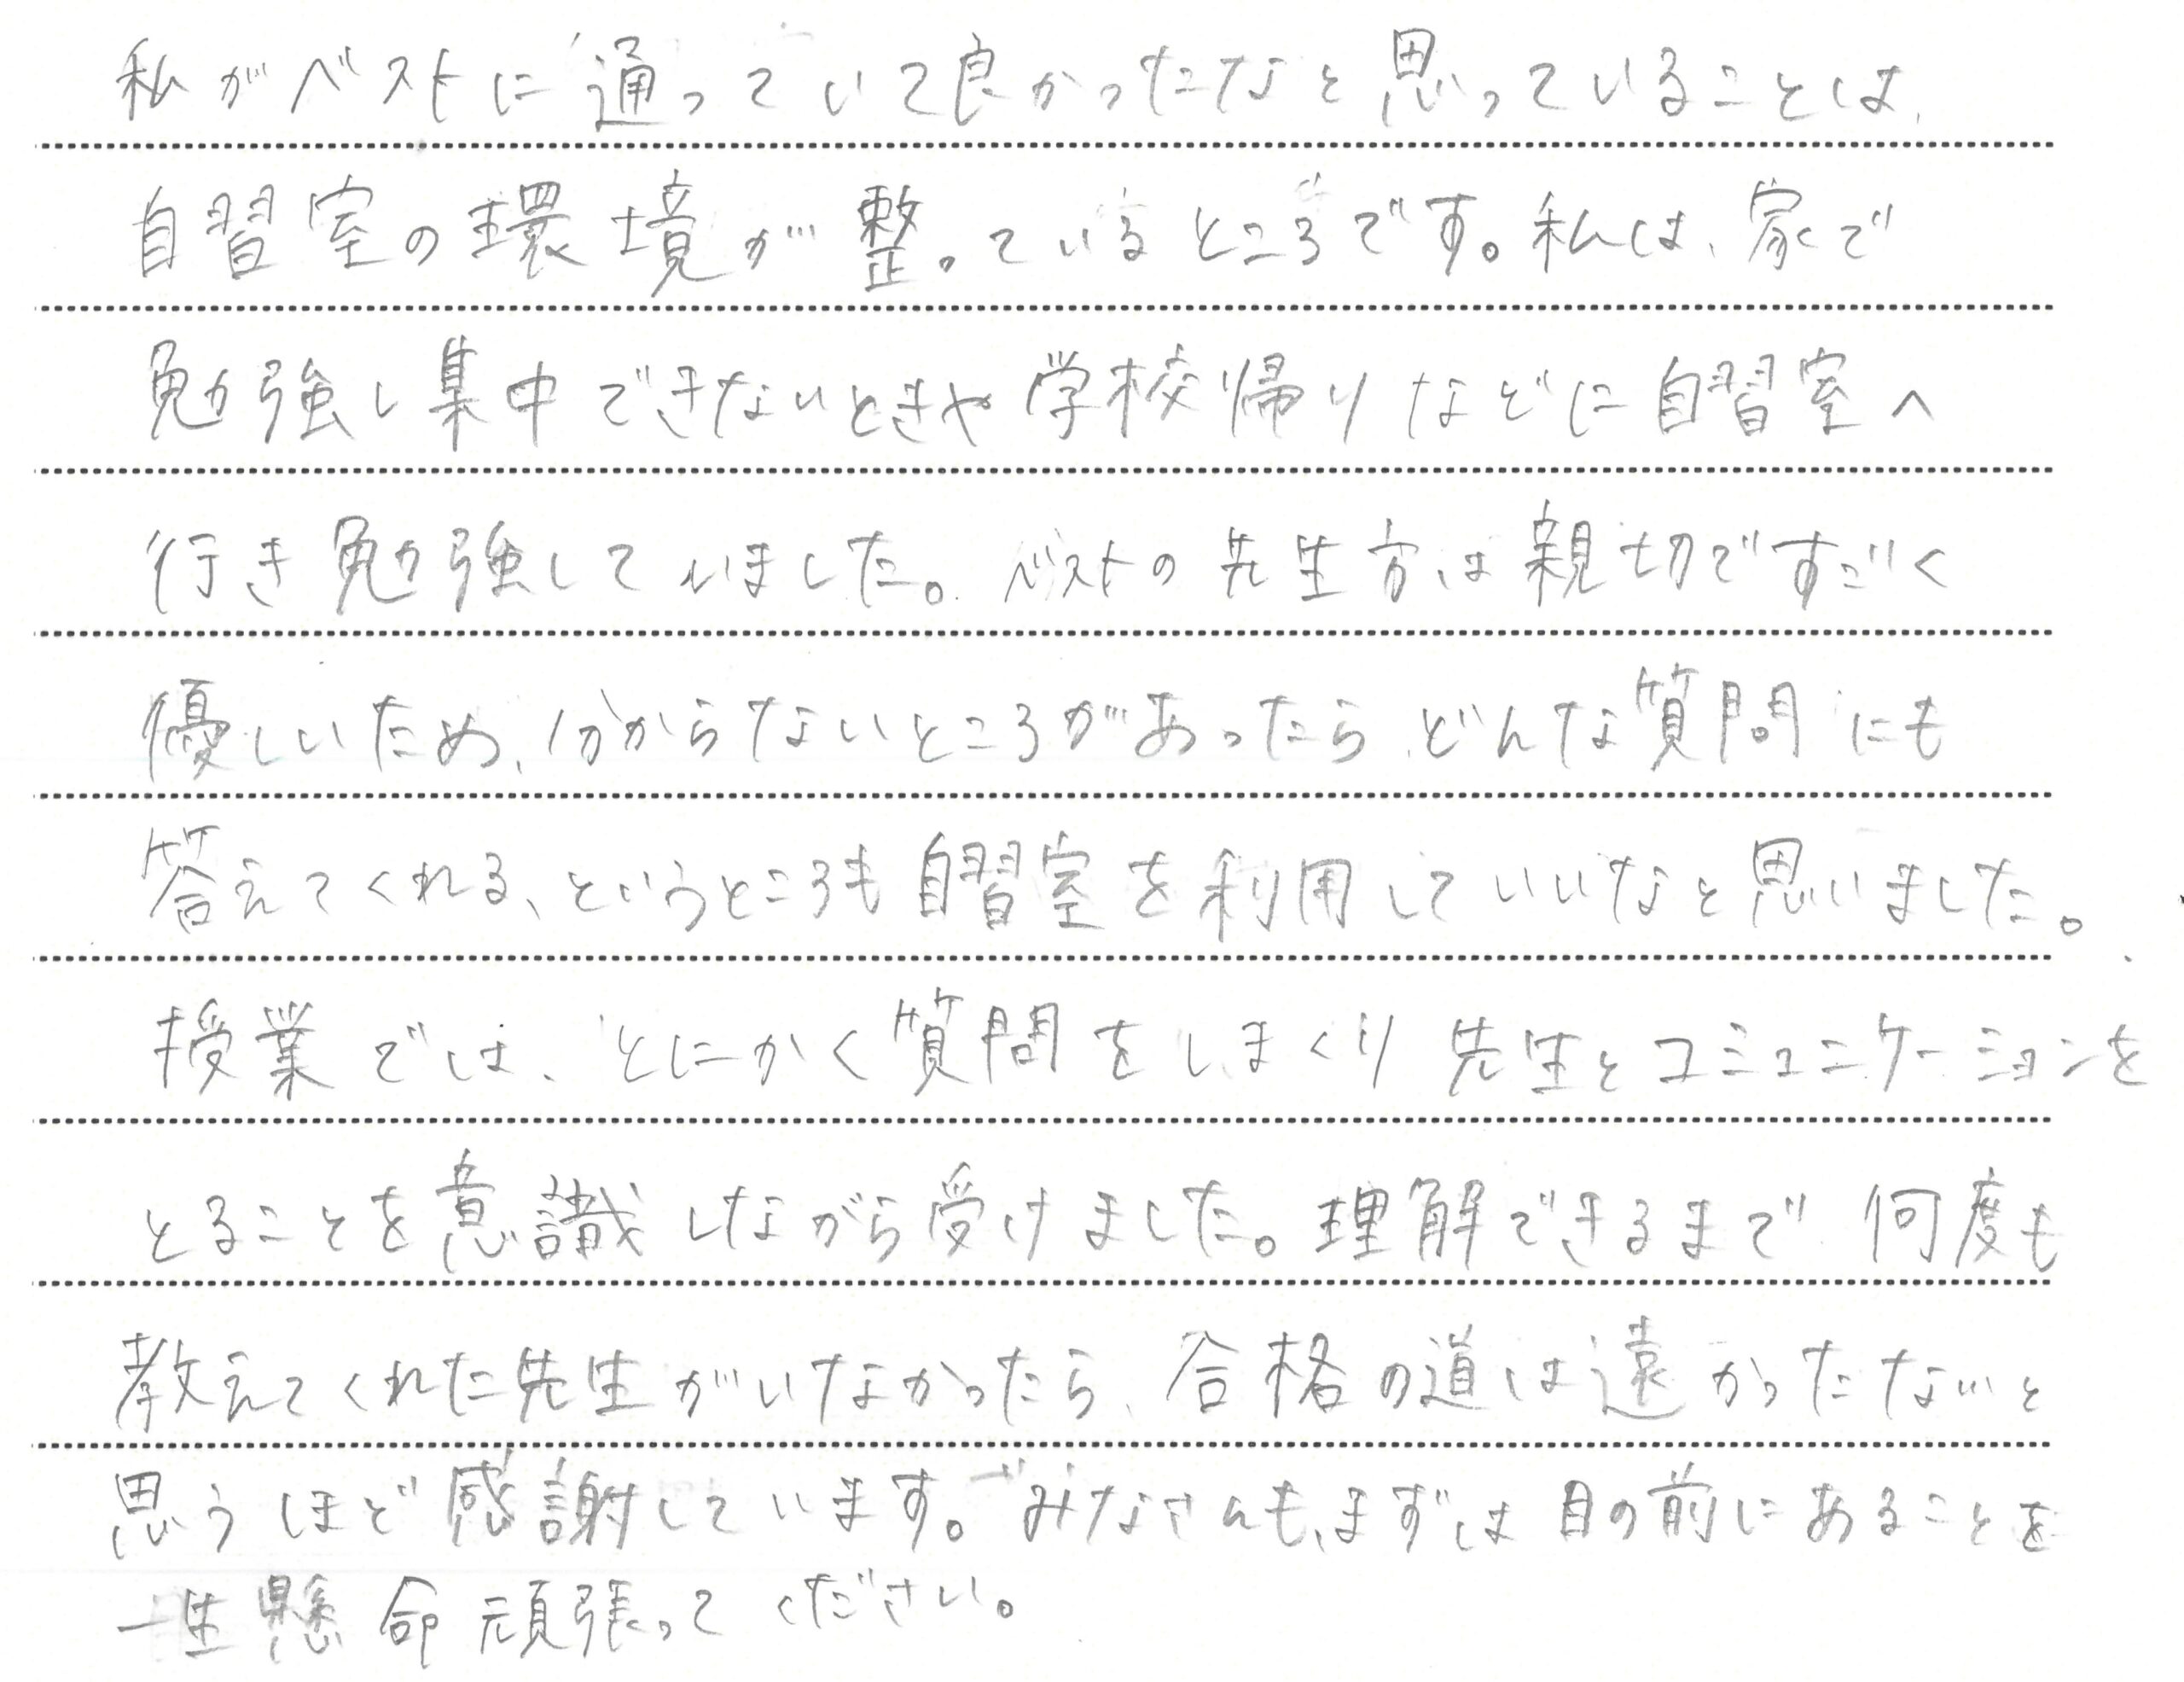 私がベストに通っていて良かったなと思っていることは、
自習室の環境が整っているところです。私は、家で
勉強し集中できないときや学校帰りなどに自習室へ
行き勉強していました。ベストの先生方は親切ですごく
優しいため、分からないところがあったら、どんな質問にも
答えてくれる、というところも自習室を利用していいなと思いました。
授業では、とにかく質問をしまくり先生とコミュニケーションを
とることを意識しながら受けました。理解できるまで何度も
教えてくれた先生がいなかったら、合格の道は遠かったなぃと
思うほど感謝しています。みなさんも、まずは目の前にあることを
一生懸命頑張ってください。